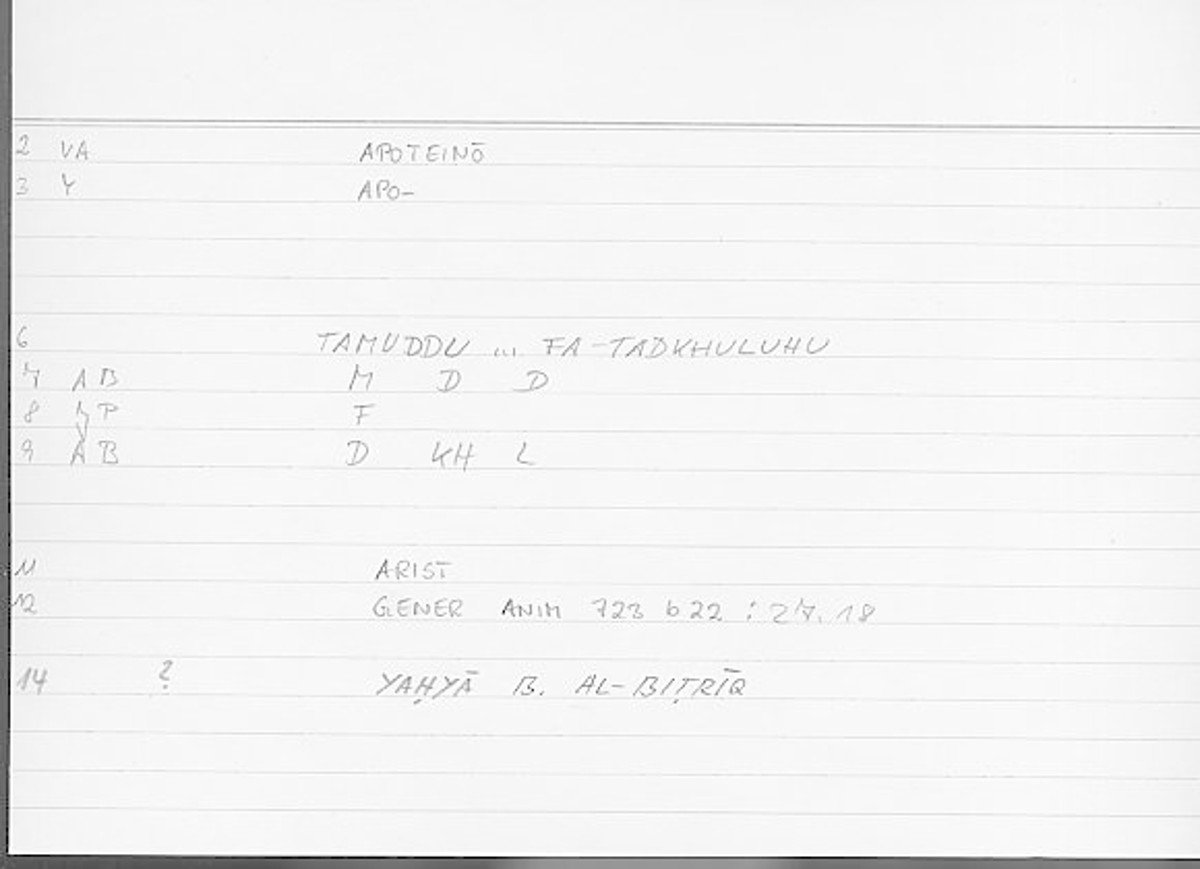 2 VA APOTEINŌ
3 Y APO-
6 TAMUDDU ... FA-TADKHULUHU
7 A B M D D
8 P F
9 A B D KH L
11 ARIST
12 GENER ANIM 723 b 22 : 27.18
14 ? YAḤYĀ B. AL-BIṬRĪQ